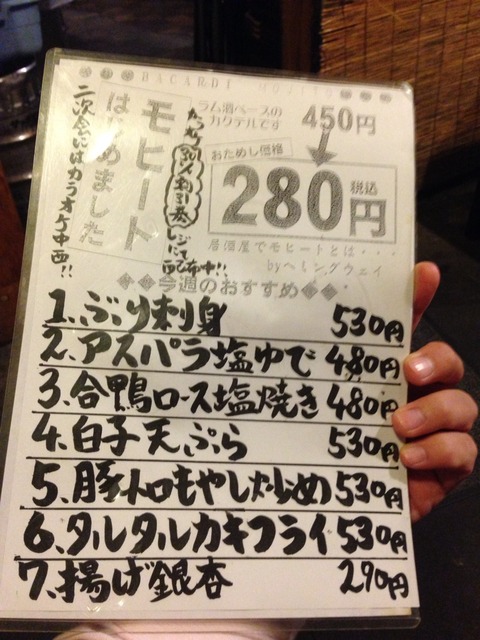 BACARDI MOJITO
モヒート
はじめました
ラム酒ベースの
カクテルです
450円
おためし価格
280円 税込
居酒屋でモヒートとは・・・
byヘミングウェイ
二次会にはカラオケ中西!!
割引券
レジにて
配布中!!
今週のおすすめ
1.ぶり刺身 530円
2.アスパラ塩ゆで 480円
3.合鴨ロース塩焼き 480円
4.白子天ぷら 530円
5.豚トロもやし炒め 530円
6.タルタルカキフライ 530円
7.揚げ銀杏 290円